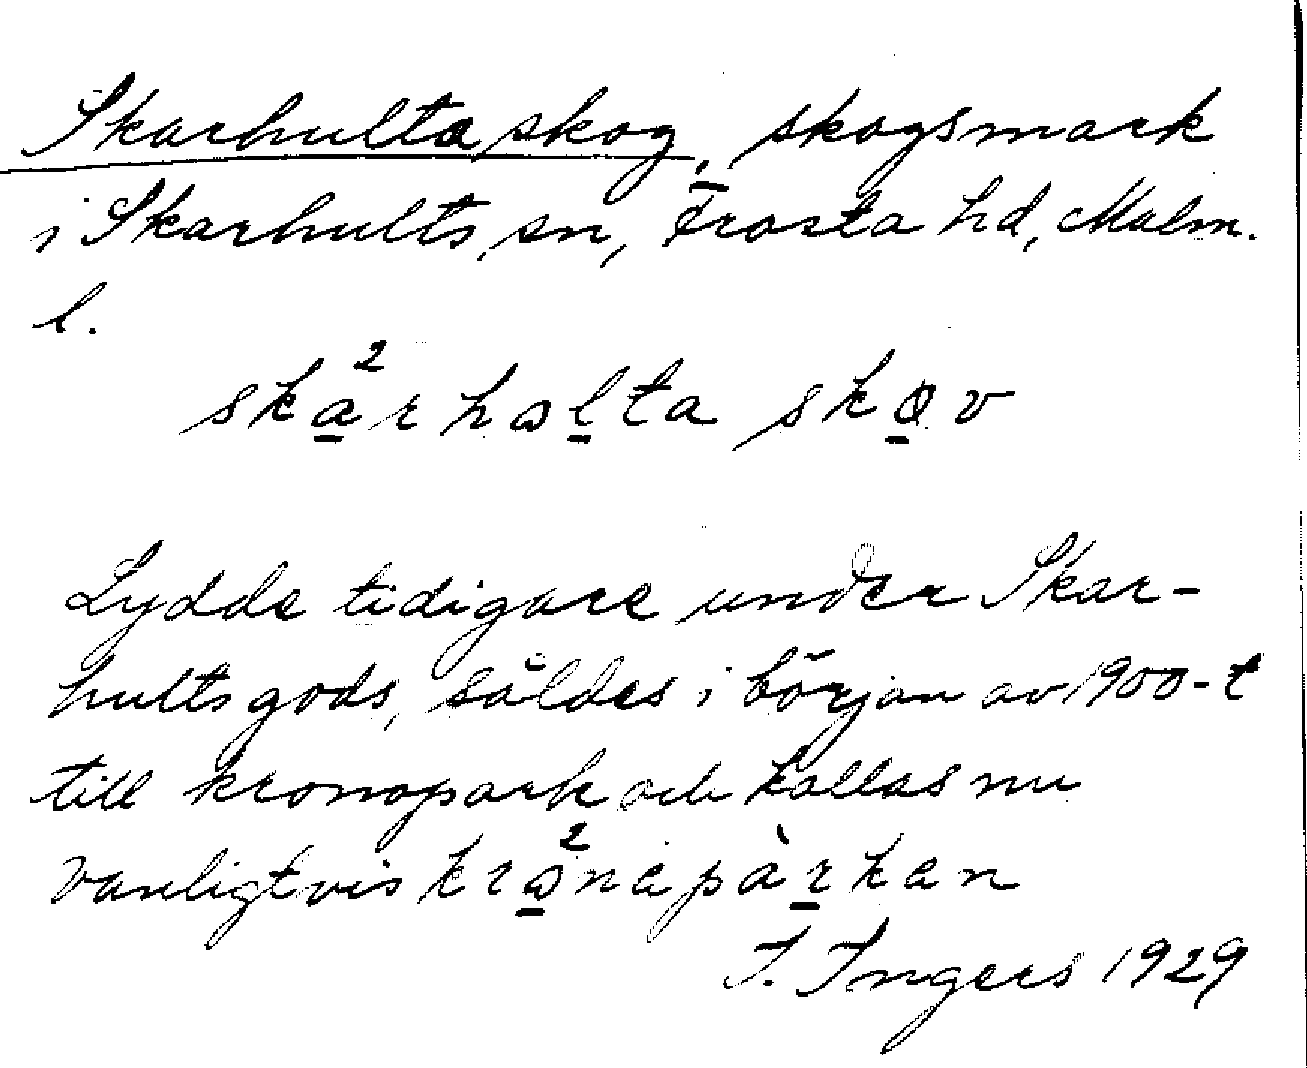 Skarhulta skog, skogsmark
i Skarhults sn, Frosta hd, Malm.
l.
ska²rhɷlta skov
Lydde tidigare under Skar-
hults gods, såldes i början av 1900-t
till kronopark och kallas nu
vanligtvis krɷ²nepàrken
I. Ingers 1929